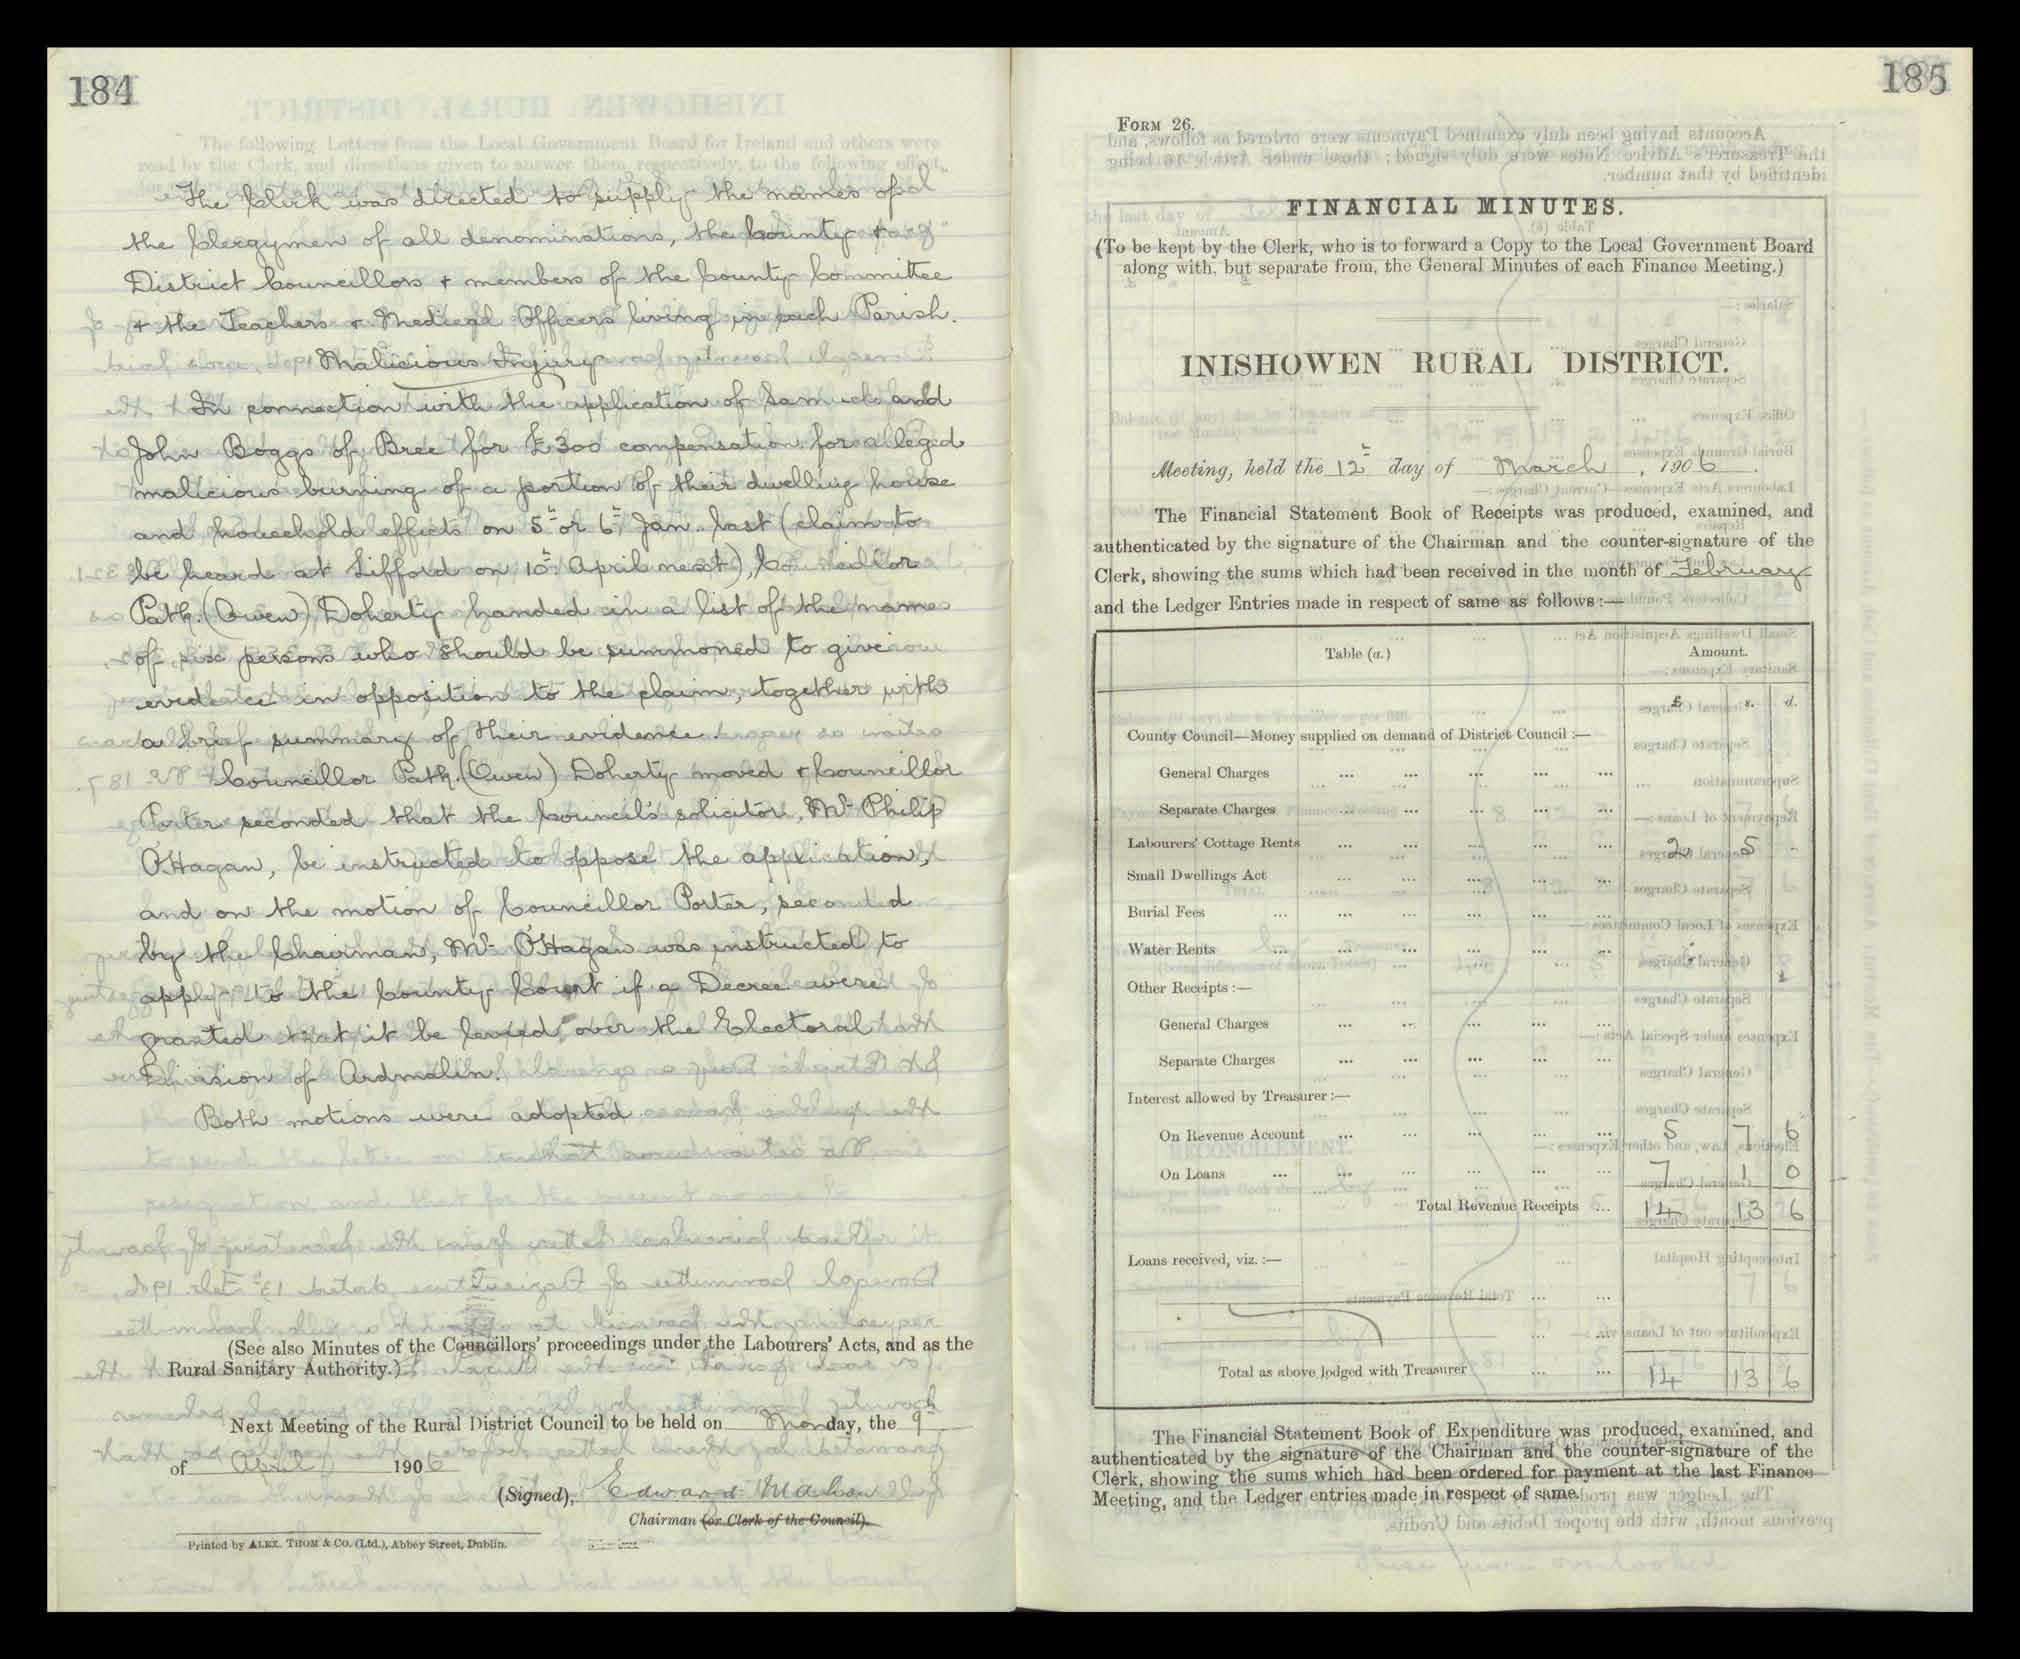 184
The Clerk was directed to supply the names of
the Clergymen of all denominations, the County &
District Councillors & members of the County Committee
& the Teachers & Medical Officers living in each Parish.
Malicious Injury
In connection with the application of Samuel and
John Boggs of Bree for £300 compensation for alleged
malicious burning of a portion of their dwelling house
and household effects on 5th or 6th Jan. last (claim to
be heard at Lifford on 10th April next), Councillor
Patk. (Owen) Doherty handed in a list of the name
of six persons who should be summoned to give
evidence in opposition to the claim, together with
a brief summary of their evidence.
Councillor Patk. (Owen) Doherty moved & Councillor
Porter seconded that the Council's solicitor, Mr Philip
O'Hagan, be instructed to oppose the application,
and on the motion of Councillor Porter, seconded
by the Chairman, Mr O'Hagan was instructed to
apply to the County Court if a Decree were
granted that it be levied over the Electoral
Division of Ardmalin.
Both motions were adopted.
(See also Minutes of the Councillors' proceedings under the Labourers' Acts, and as the
Rural Sanitary Authority.)
Next Meeting of the Rural District Council to be held on Monday, the 9th
of April 1906
(Signed), Edward
Chairman (or Clerk of the Council).
Printed by ALEX. THOM & CO. (Ltd.), Abbey Street, Dublin.
185
FORM 26.
FINANCIAL MINUTES.
(To be kept by the Clerk, who is to forward a Copy to the Local Government Board
along with, but separate from, the General Minutes of each Finance Meeting.)
INISHOWEN RURAL DISTRICT.
Meeting, held the 12th day of March, 1906.
The Financial Statement Book of Receipts was produced, examined, and
authenticated by the signature of the Chairman and the counter-signature of the
Clerk, showing the sums which had been received in the month of February
and the Ledger Entries made in respect of same as follows:—
Table (a.) Amount.
£ s. d.
County Council—Money supplied on demand of District Council:—
General Charges ... ... ... ... ...
Separate Charges ... ... ... ... ...
Labourers' Cottage Rents ... ... ... ... ... 2 5 -
Small Dwellings Act ... ... ... ... ...
Burial Fees ... ... ... ... ... ...
Water Rents ... ... ... ... ... ...
Other Receipts:—
General Charges ... ... ... ... ...
Separate Charges ... ... ... ... ...
Interest allowed by Treasurer:—
On Revenue Account ... ... ... ... ... 5 7 6
On Loans ... ... ... ... ... ... 7 1 0
Total Revenue Receipts ... 14 13 6
Loans received, viz.:—
Total as above lodged with Treasurer ... ... 14 13 6
The Financial Statement Book of Expenditure was produced, examined, and
authenticated by the signature of the Chairman and the counter-signature of the
Clerk, showing the sums which had been ordered for payment at the last Finance
Meeting, and the Ledger entries made in respect of same.